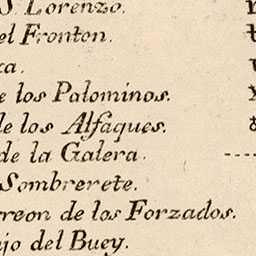 S. Lorenzo.
el Fronton.
ca.
e los Palominos.
de los Alfaques.
de la Galera.
Sombrerete.
rreon de los Forzados.
jo del Buey.